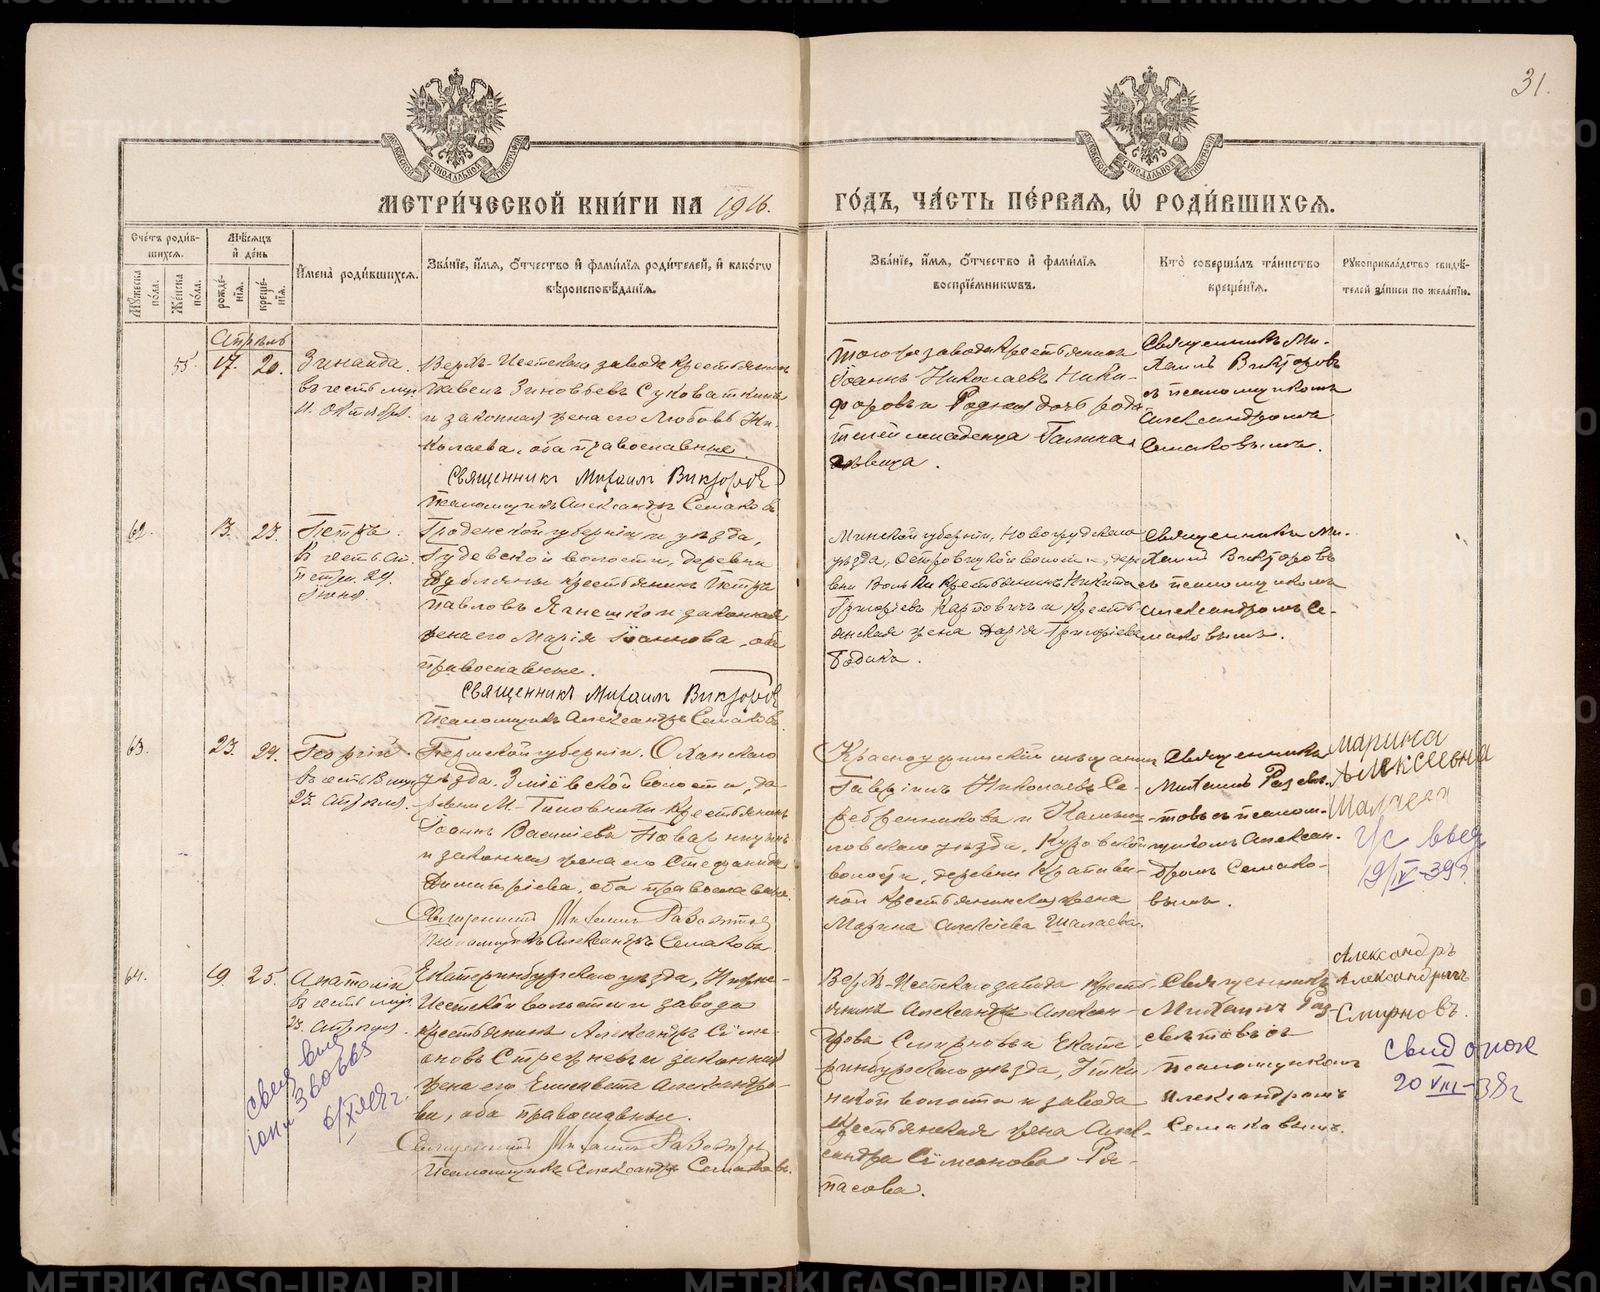 31.
МЕТРИ́ЧЕСКОЙ КНИ́ГИ НА 1916.
ГО́ДЪ, ЧА́СТЬ ПЕ́РВАЯ, Ѽ РОДИ́ВШИХСЯ.
Сче́тъ роди́в-
шихся.
Мꙋ́жеска по́ла.
Же́нска по́ла.
Мѣ́сяцъ и҆ де́нь
рожде́-
нїѧ.
креще́-
нїѧ.
И҆мена̀ роди́вшихсѧ.
Зва́нїе, и҆́мѧ, ѻ҆́тчество и҆ фами́лїѧ роди́телей, и҆ како́гѡ
вѣроисповѣ́данїѧ.
Зва́нїе, и҆́мѧ, ѻ҆́тчество и҆ фами́лїѧ
воспрїе́мникѡвъ.
Кто̀ соверша́лъ та́инство
креще́нїѧ.
Рꙋкоприкла́дство свидѣ́-
телей за́писи по жела́нїю.
Апрѣль
55. 17. 20.
Зинаида.
въ честь муч.
11. октября.
Верхъ-Исетскаго завода крестьянинъ
Павелъ Зиновьевъ Суковаткинъ
и законная жена его Любовь Ни-
колаева, оба православные.
Священникъ Михаилъ Викторовъ
Псаломщикъ Александръ Семаковъ
Того же завода крестьянинъ
Іоаннъ Николаевъ Ники-
форовъ и Родная дочь роди-
телей младенца Галина,
дѣвица.
Священникъ Ми-
хаилъ Викторовъ
съ псаломщикомъ
Александромъ
Семаковымъ.
62. 13. 23.
Петръ.
въ честь ап.
Петра. 29.
Іюня.
Гроденской губерніи и уѣзда,
Гудевской волости, деревни
крестьянинъ Петръ
Павловъ и законная
жена его Марія Іоаннова, оба
православные.
Священникъ Михаилъ Викторовъ
Псаломщикъ Александръ Семаковъ
Минской губерніи, Новогрудскаго
уѣзда, волости, дер-
вни крестьянинъ Никита
Григорьевъ Карповичъ и Кресть-
янская жена Дарія Григорьева
Священникъ Ми-
хаилъ Викторовъ
съ псаломщикомъ
Александромъ Се-
маковымъ.
63. 23. 24.
Георгій.
въ честь В. муч.
23. Апрѣля.
Пермской губерніи. Оханскаго
уѣзда. Змѣевской волости, де-
ревни М- крестьянинъ
Іоаннъ Васильевъ
и законная жена его Стефанида
Димитріева, оба православные.
Священникъ Михаилъ
Псаломщикъ Александръ Семаковъ
Красноуфимскій мѣщанинъ
Гавріилъ Николаевъ Се-
ребренниковъ и
уѣзда,
волости, деревни Крапиви-
ной крестьянская жена
Марина Алексіева Шалаева.
Священникъ
Михаилъ Разсвѣ-
товъ съ псалом-
щикомъ Алексан-
дромъ Семако-
вымъ.
Марина
Алексеевна
Шалаева
19/IV-39г.
64. 19. 25.
Анатолій
въ честь муч.
23. Апрѣля.
Екатеринбургскаго уѣзда, Нижне-
Исетской волости и завода
крестьянинъ Александръ Сѵме-
оновъ Стрежневъ и законная
жена его Елисавета Александро-
ва, оба православные.
Священникъ Михаилъ
Псаломщикъ Александръ Семаковъ.
Верхъ-Исетскаго завода кресть-
янинъ Александръ Алексан-
дровъ Смирновъ и Екате-
ринбургскаго уѣзда,
волости и завода
крестьянская жена Алек-
сандра Сѵмеонова Ря-
пасова.
Священникъ
Михаилъ Раз-
свѣтовъ съ
псаломщикомъ
Александромъ
Семаковымъ.
Александръ
Александрычъ
Смирновъ.
20 VIII-38г